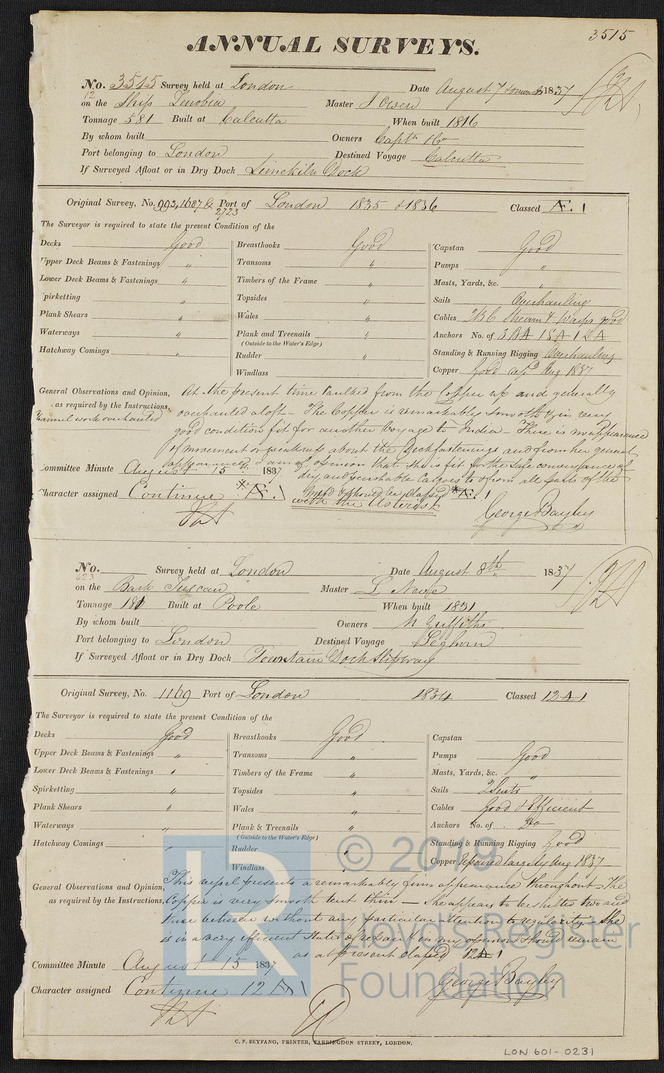 3515
ANNUAL SURVEYS.
No. 3515 Survey held at London Date August 7 1837
12
on the Ship Zenobia Master J Owen
Tonnage 581 Built at Calcutta When built 1816
By whom built Owners Captn & Co
Port belonging to London Destined Voyage Calcutta
If Surveyed Afloat or in Dry Dock Limekiln Dock
Original Survey, No. 992, 1687 & Port of London 1835 & 1836 Classed Æ. 1
2723
The Surveyor is required to state the present Condition of the
Decks Good Breasthooks Good Capstan Good
Upper Deck Beams & Fastenings " Transoms " Pumps "
Lower Deck Beams & Fastenings " Timbers of the Frame " Masts, Yards, &c. "
Spirketting " Topsides " Sails Overhauling
Plank Shears " Wales " Cables 2 B C Stream & Warps good
Waterways " Plank and Treenails " Anchors No. of 3 BA 1 SA 1 2 A
(Outside to the Water's Edge)
Hatchway Comings " Rudder " Standing & Running Rigging Overhauling
Windlass " Copper Good Aug 1837
General Observations and Opinion, At the present time Caulked from the Copper up and generally
as required by the Instructions, overhauled aloft – The Copper is remarkably smooth & in very
good condition fit for another Voyage to India – There is no appearance
of movement or weakness about the Deck fastenings and from her general
appearance I am of opinion that she is fit for the safe conveyance of
dry and perishable Cargoes to & from all parts of the
Committee Minute August 15th 1837
Character assigned Continue *Æ. 1 World & should be classed *Æ. 1
with the Asterisk
George Bayley
No. Survey held at London Date August 8th 1837
623
on the Bark Tuscan Master L Nause
Tonnage 181 Built at Poole When built 1831
By whom built Owners M Griffiths
Port belonging to London Destined Voyage Leghorn
If Surveyed Afloat or in Dry Dock Fountain Dock Slipway
Original Survey, No. 1169 Port of London 1834 Classed 12 A 1
The Surveyor is required to state the present Condition of the
Decks Good Breasthooks Good Capstan
Upper Deck Beams & Fastenings " Transoms " Pumps Good
Lower Deck Beams & Fastenings " Timbers of the Frame " Masts, Yards, &c. "
Spirketting " Topsides " Sails 2 Suits
Plank Shears " Wales " Cables Good & Efficient
Waterways " Plank & Treenails " Anchors No. of Do
(Outside to the Water's Edge)
Hatchway Comings " Rudder " Standing & Running Rigging Good
Windlass " Copper Repaired largely Aug 1837
General Observations and Opinion, This vessel presents a remarkably firm appearance throughout – The
as required by the Instructions, Copper is very smooth but thin – She appears to be bolted two and
three between without any particular attention to regularity. She
is in a very efficient state of repair & in my opinion should remain
as at present classed 12 A 1
Committee Minute August 15 1837
Character assigned Continue 12 A 1 George Bayley
© 2019
Lloyd's Register
Foundation
LR
C. F. SEYFANG, PRINTER, FARRINGDON STREET, LONDON.
LON 601-0231